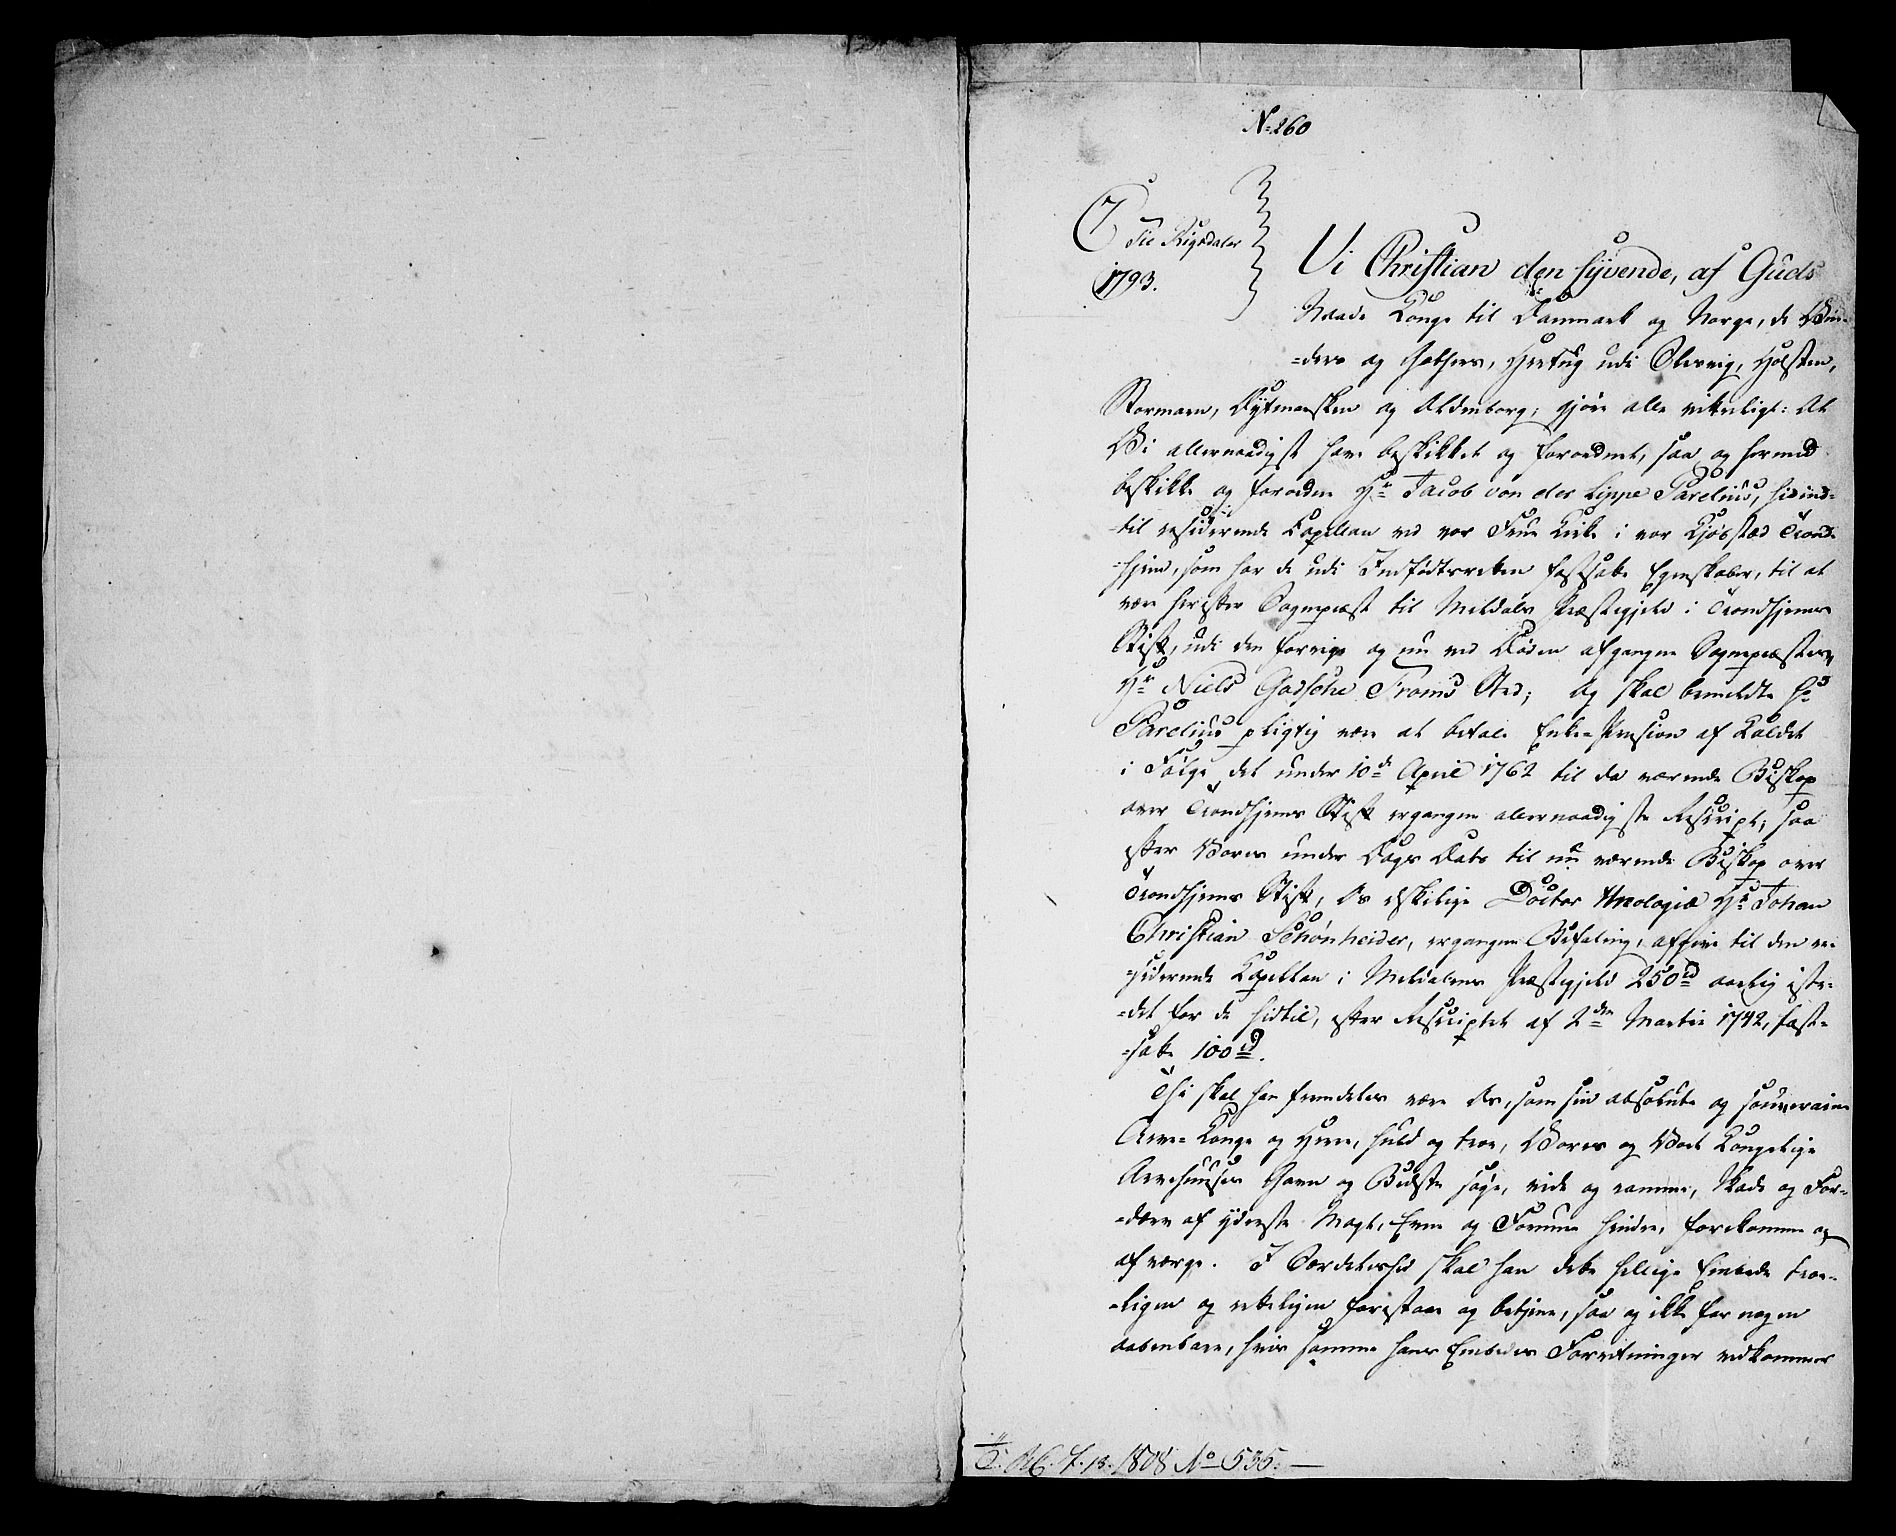 No 260
Tie Rigsdaler
1793.
Vi Christian den Syvende, af Guds
Naade Konge til Danmark og Norge, de Ven-
-ders og Gothers, Hertug udi Slesvig, Holsten,
Stormarn, Dytmarsken og Oldenborg; gjøre alle vitterligt: At
Vi allernaadigst have beskikket og forordnet, saa og hermed
beskikke og forordne Hr Jacob von der Lippe Parelius, hidind-
-til residerende Capellan ved vor Frue Kirke i vor Kjøbstæd Trond-
-hjem, som har de udi Indfødsretten fastsatte Egenskaber, til at
være herefter Sognepræst til Meldals Præstegjeld i Trondhjems
Stift, udi den forrige og nu ved Døden afgangne Sognepræstes,
Hr Niels Godsche Froms Sted; og skal bemeldte Hr
Parelius pligtig være at betale Enke-Pension af Kaldet
i Følge det under 10de April 1762 til da værende Biskop
over Trondhjems Stift ergangne allernaadigste Rescript, saa
efter Vores under Dags Dato til nu værende Biskop over
Trondhjems Stift, Os elskelige Doctor Theologiæ Hr Johan
Christian Schønheider, ergangne Befaling, afgive til den re-
-siderende Capellan i Meldalens Præstegjeld 250 rd aarlig iste-
-det for de hidtil, efter Rescriptet af 2den Martii 1742, fast-
-satte 100 rd.
Thi skal han fremdeles være Os, som sin absolute og souveraine
Arve-Konge og Herre, huld og troe, Vores og Vort Kongelige
Arvehuuses Gavn og Bedste søge, vide og ramme, Skade og For-
-dærv af yderste Magt, Evne og Formue hindre, forekomme og
afværge. I Særdeleshed skal han dette hellige Embede troe-
-ligen og retteligen forestaae og betjene, saa og ikke for nogen
aabenbare, hvis samme hans Embedes Forretninger vedkommer
1808 No 535.